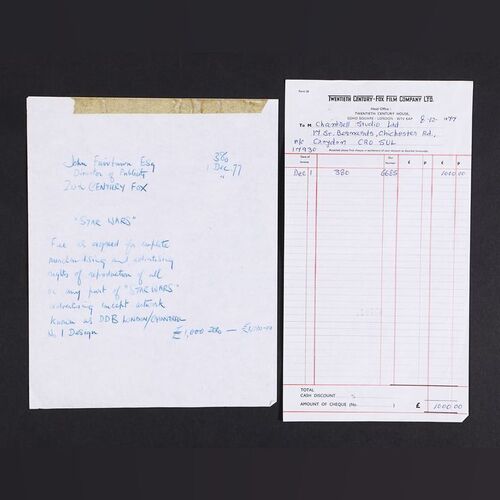 John Fairbairn Esq 380
Director of Publicity 1 Dec 77
20th CENTURY FOX "
"STAR WARS"
Fee as agreed for complete
merchandising and advertising
rights of reproduction of all
or any part of "STAR WARS"
advertising concept artwork
known as DDB LONDON/CHANTRELL
No 1 Design £1,000 — £1,000-00
Form 28
TWENTIETH CENTURY-FOX FILM COMPANY LTD.
Head Office:
TWENTIETH CENTURY HOUSE,
SOHO SQUARE · LONDON · W1V 6AP 8-12- 1977
To M Chantrell Studio Ltd
17 St. Bernards, Chichester Rd.,
Croydon CRO 5UL
17930
Date of Invoice Our Number £ p £ p
Dec 1 380 6685 1000 00
TOTAL
CASH DISCOUNT %
AMOUNT OF CHEQUE (No. ) £ 1000 00